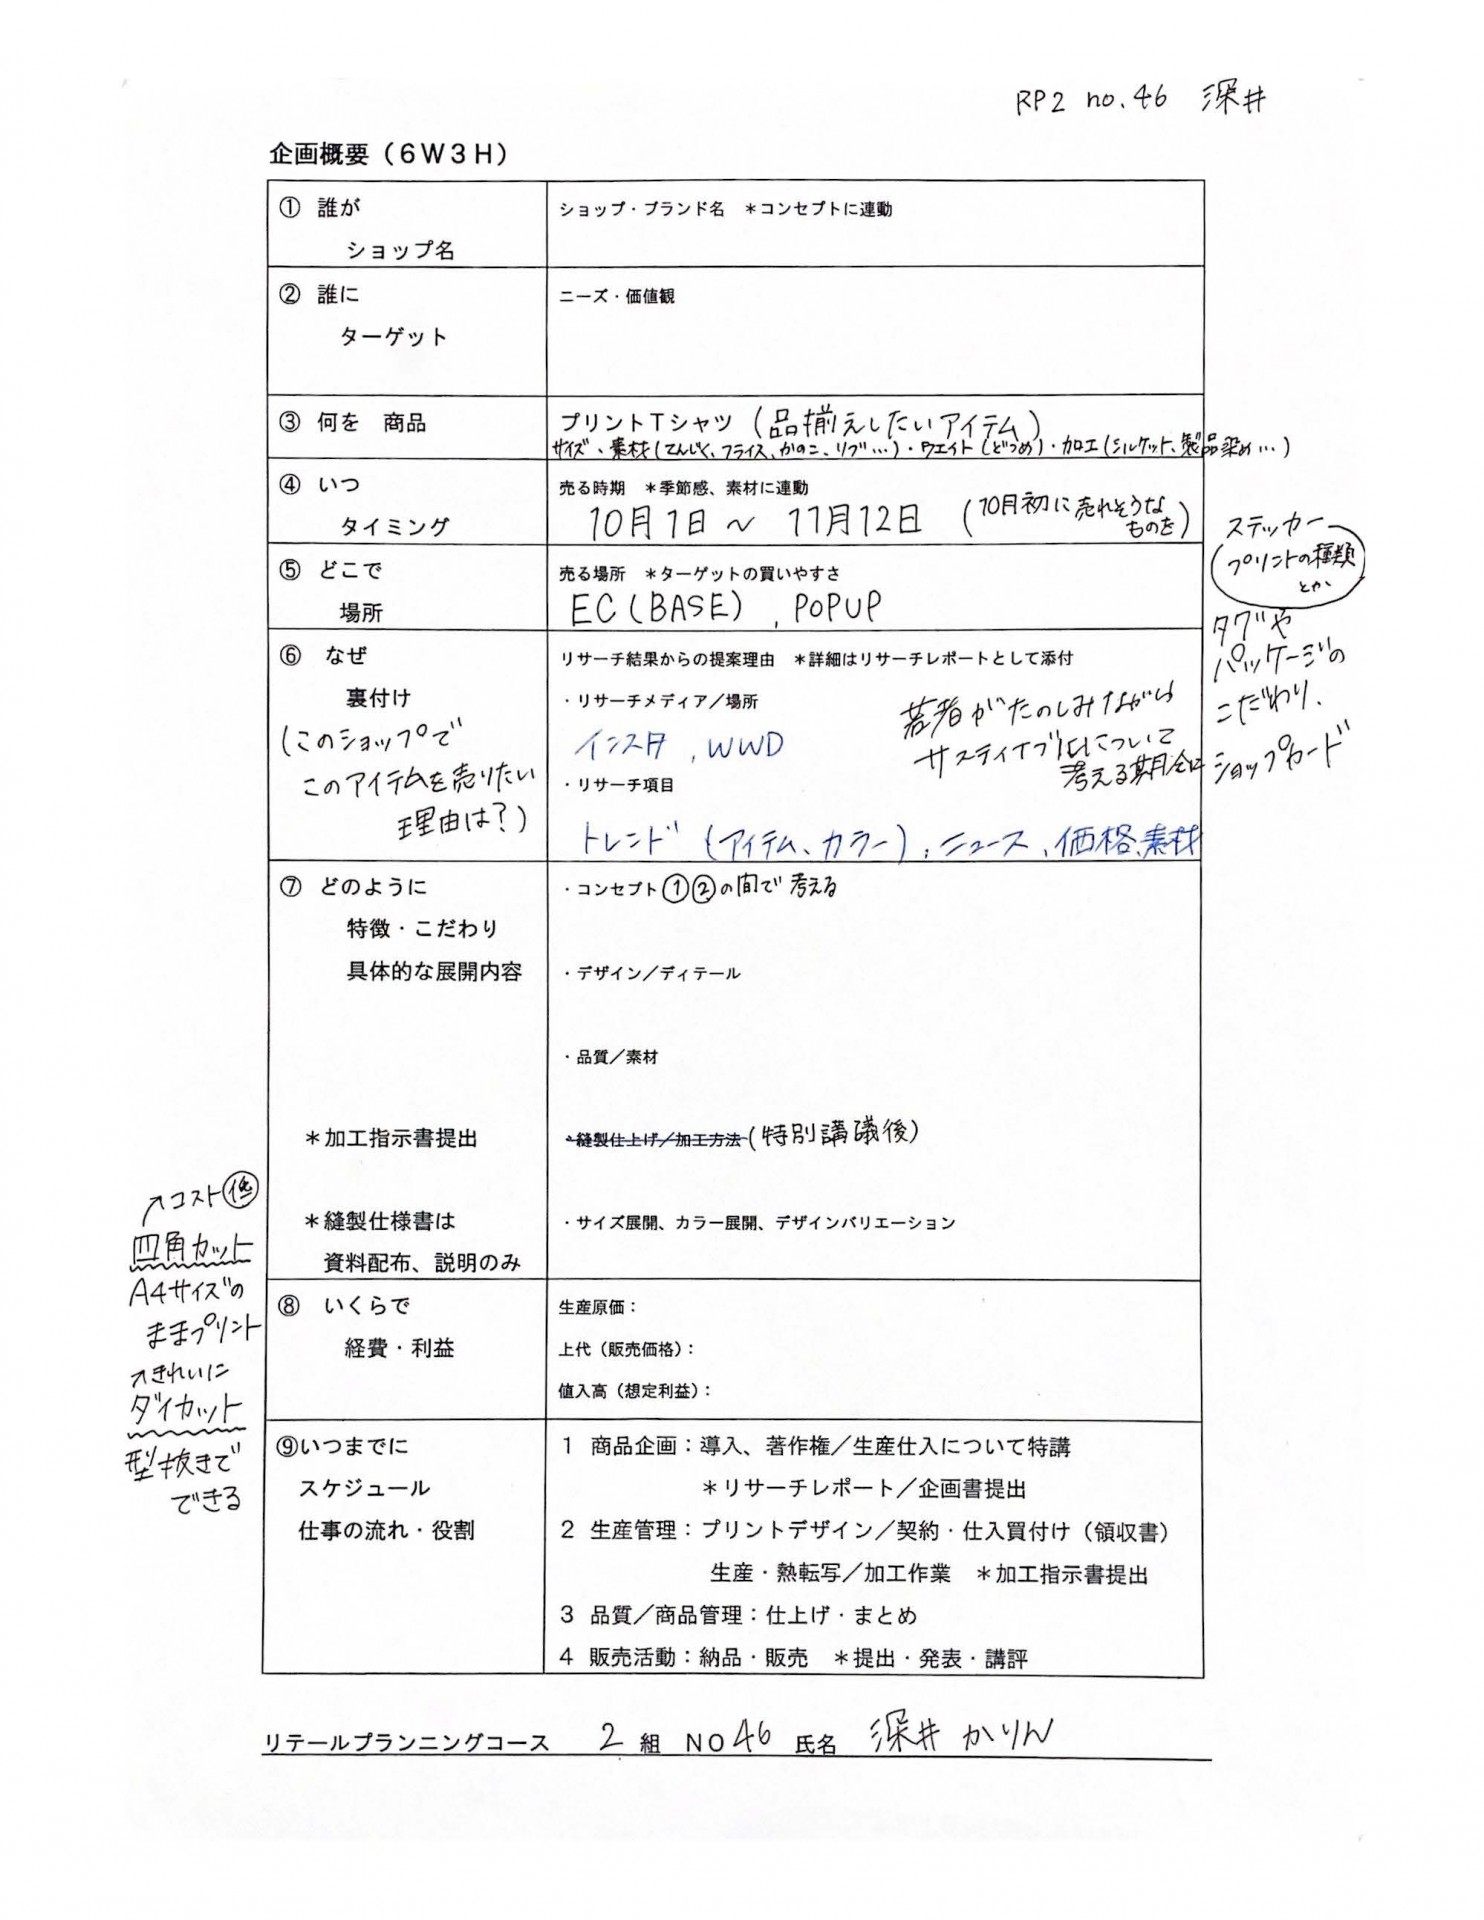 RP2 no.46 深井
企画概要（6W3H）
① 誰が
ショップ名
ショップ・ブランド名　＊コンセプトに連動
② 誰に
ターゲット
ニーズ・価値観
③ 何を　商品
プリントTシャツ（品揃えしたいアイテム）
サイズ、素材（てんじく、フライス、かのこ、リブ…）・ウエイト（どつめ）・加工（シルケット、製品染め…）
④ いつ
タイミング
売る時期　＊季節感、素材に連動
10月1日～11月12日（10月初に売れそうな
ものを）
⑤ どこで
場所
売る場所　＊ターゲットの買いやすさ
EC（BASE）, POPUP
ステッカー
プリントの種類
とか
タグや
パッケージの
こだわり、
ショップカード
⑥ なぜ
裏付け
（このショップで
このアイテムを売りたい
理由は？）
リサーチ結果からの提案理由　＊詳細はリサーチレポートとして添付
・リサーチメディア／場所
インスタ, WWD
若者がたのしみながら
サスティナブルについて
考える
・リサーチ項目
トレンド（アイテム、カラー）, ニュース、価格、素材
⑦ どのように
特徴・こだわり
具体的な展開内容
・コンセプト①②の間で考える
・デザイン／ディテール
・品質／素材
＊加工指示書提出
・縫製仕上げ／加工方法（特別講議後）
＊縫製仕様書は
資料配布、説明のみ
・サイズ展開、カラー展開、デザインバリエーション
↗コスト低
四角カット
A4サイズの
ままプリント
↗きれいに
ダイカット
型抜きで
できる
⑧ いくらで
経費・利益
生産原価：
上代（販売価格）：
値入高（想定利益）：
⑨いつまでに
スケジュール
仕事の流れ・役割
1 商品企画：導入、著作権／生産仕入について特講
＊リサーチレポート／企画書提出
2 生産管理：プリントデザイン／契約・仕入買付け（領収書）
生産・熱転写／加工作業　＊加工指示書提出
3 品質／商品管理：仕上げ・まとめ
4 販売活動：納品・販売　＊提出・発表・講評
リテールプランニングコース　2 組 NO 46 氏名 深井 かりん